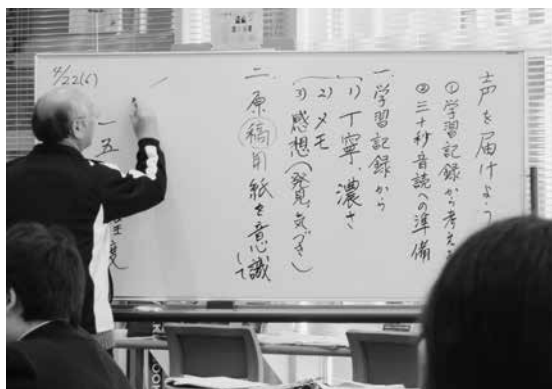 声を届けよう
①学習記録から考える
②三十秒音読への準備
一、学習記録から
1)丁寧、濃さ
2)メモ
3)感想(発見、気づき)
二、原稿用紙を意識して
4/22(6)
一五
度